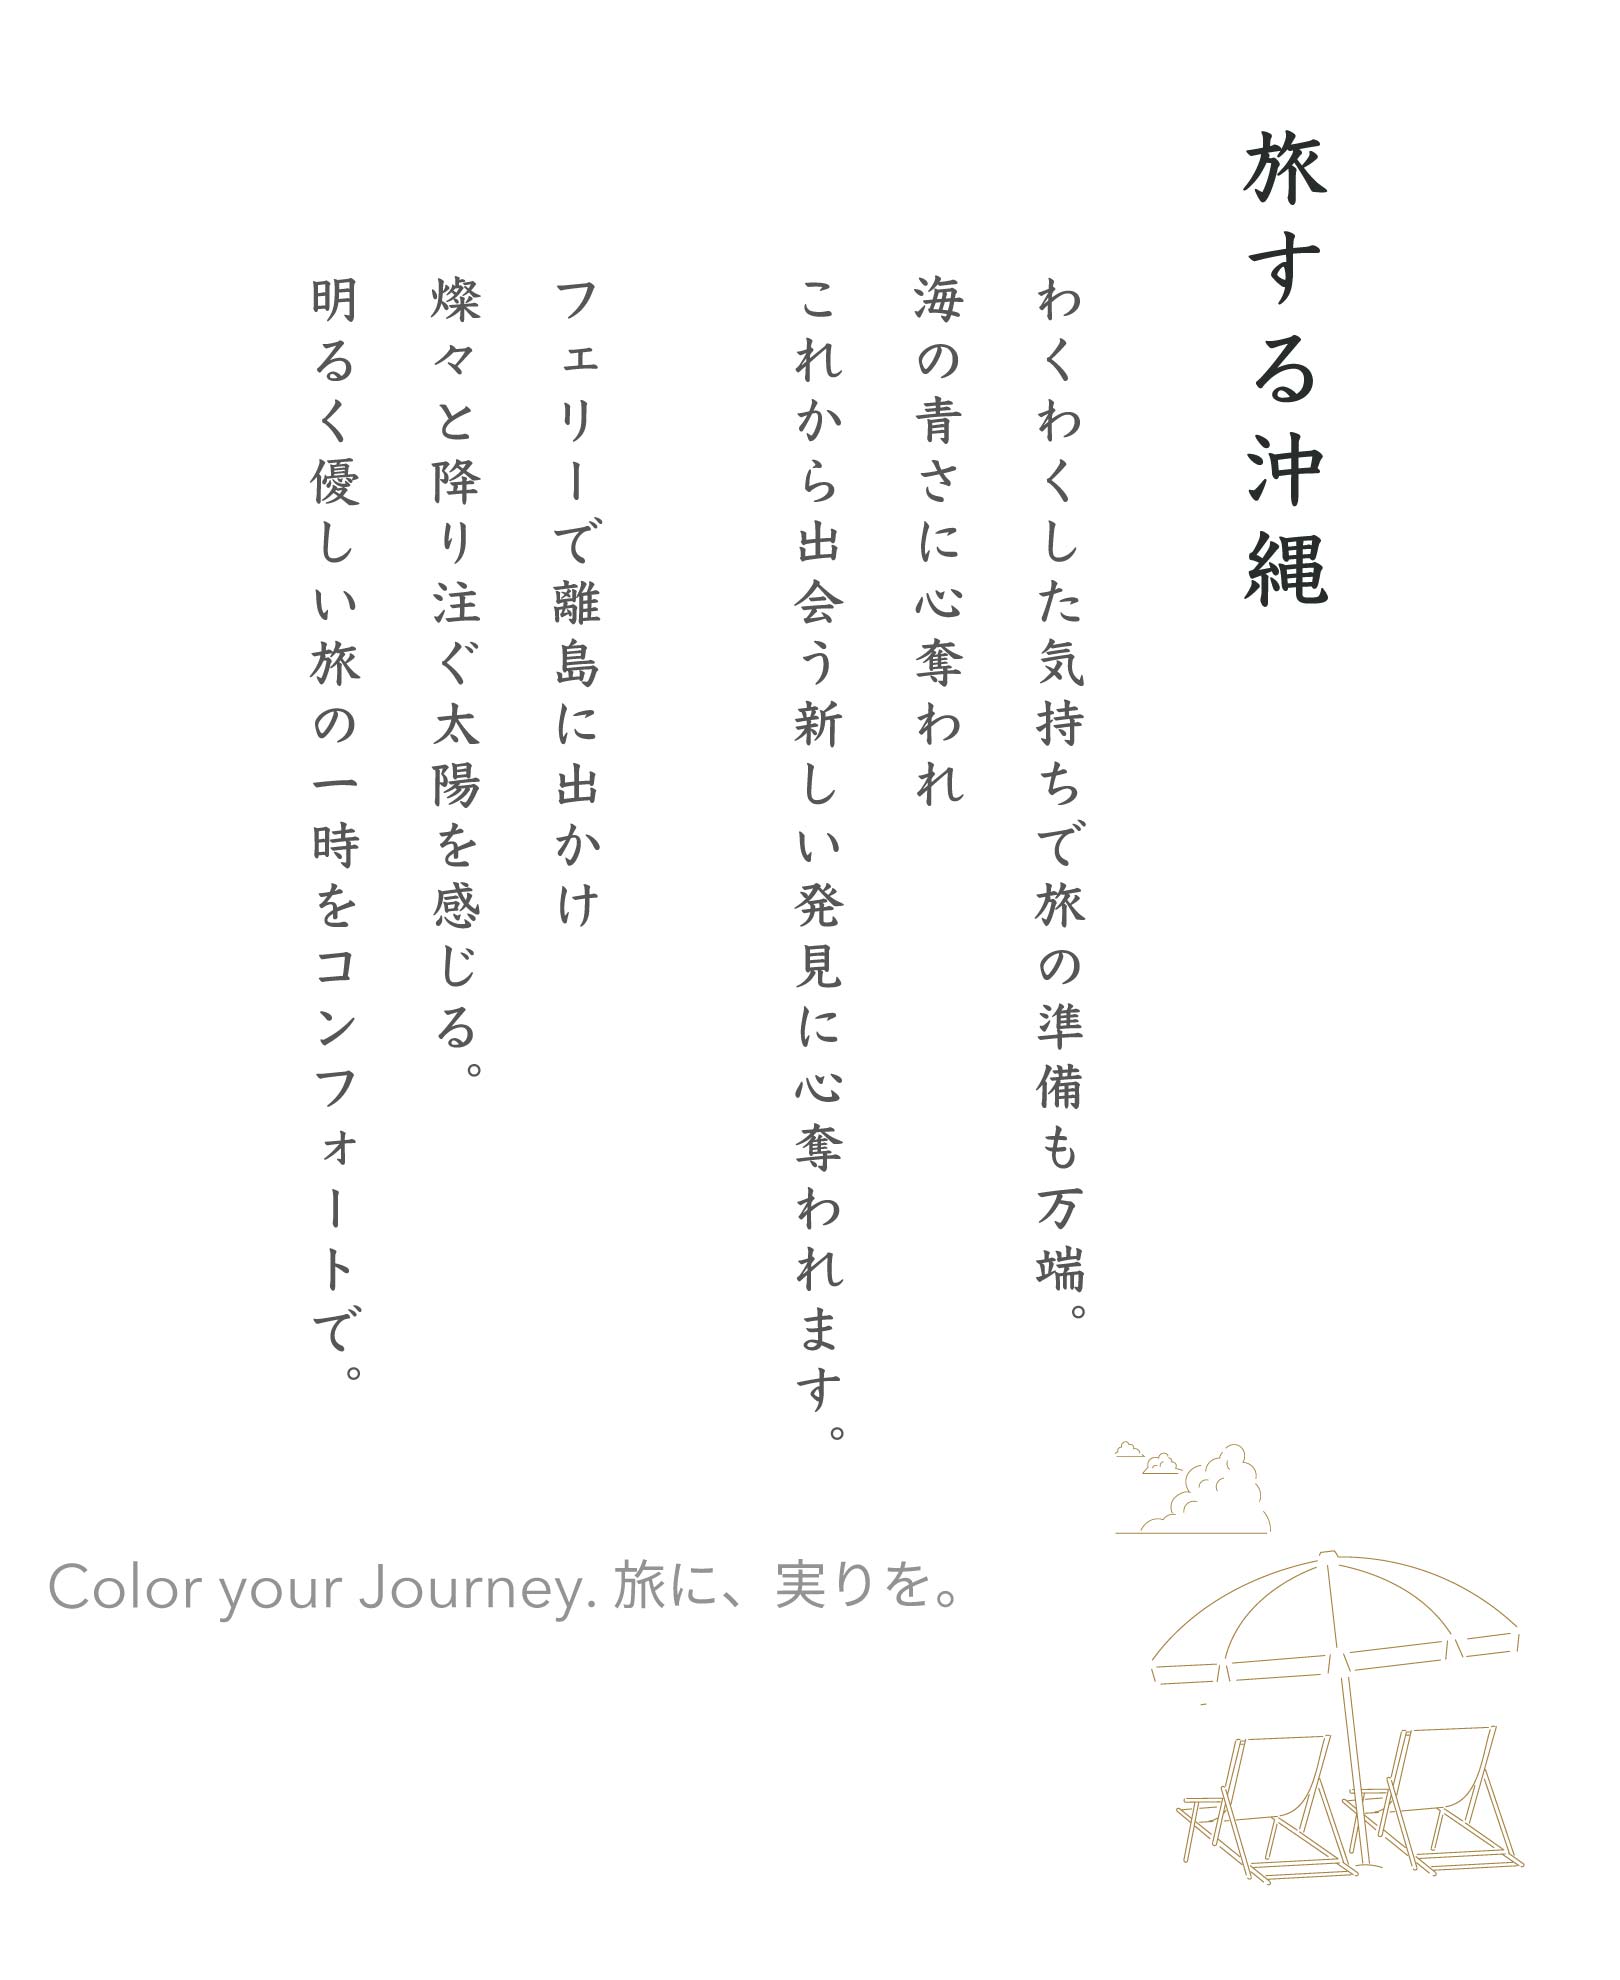 旅する沖縄
わくわくした気持ちで旅の準備も万端。
海の青さに心奪われ
これから出会う新しい発見に心奪われます。
フェリーで離島に出かけ
燦々と降り注ぐ太陽を感じる。
明るく優しい旅の一時をコンフォートで。
Color your Journey. 旅に、実りを。